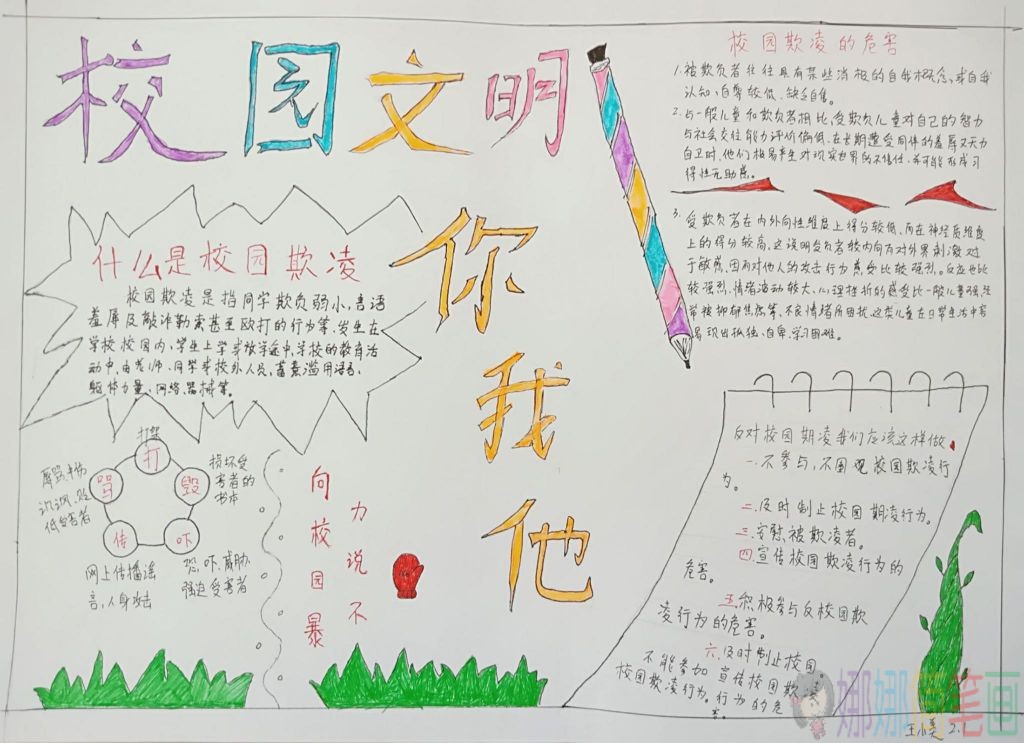 校园文明
你我他
什么是校园欺凌
校园欺凌是指同学欺负弱小，言语
羞辱及敲诈勒索甚至殴打的行为等，发生在
学校校园内、学生上学或放学途中、学校的教育活
动中，由老师、同学或校外人员，蓄意滥用语言、
躯体力量、网络、器械等。
打架
打
骂
毁
传
吓
损坏受
害者的
书本
低受害者
网上传播谣
言，人身攻击
恐吓、威胁
强迫受害者
向校园暴
力说不
校园欺凌的危害
1.被欺负者往往具有某些消极的自我概念，或自我
认知、自尊较低、缺乏自信。
2.与一般儿童和欺负者相比，受欺负儿童对自己的智力
与社会交往能力评价偏低，在长期遭受同伴的羞辱又无力
自卫时，他们极易产生对现实世界的不信任，并可能形成习
得性无助感。
3.受欺负者在内外向性维度上得分较低、而在神经质维度
上的得分较高，这说明受负者较内向而对外界刺激过
于敏感，因而对他人的攻击行为感受比较强烈。反应也比
较强烈、情绪波动较大、心理挫折的感受比一般儿童强，经
常被抑郁焦虑等、不良情绪所困扰，这类儿童在日常生活中容
易现出孤独、自卑、学习困难。
反对校园期凌我们应该这样做
一.不参与，不围观校园欺凌行
为。
二.及时制止校园期凌行为。
三.安慰被欺凌者。
四.宣传校园欺凌行为的
危害。
五.积极参与反校园欺
凌行为的危害。
六.及时制止校园
不能参加宣传校园欺凌
校园欺凌行为。行为的危
害。
王小美 2.1
娜娜简笔画